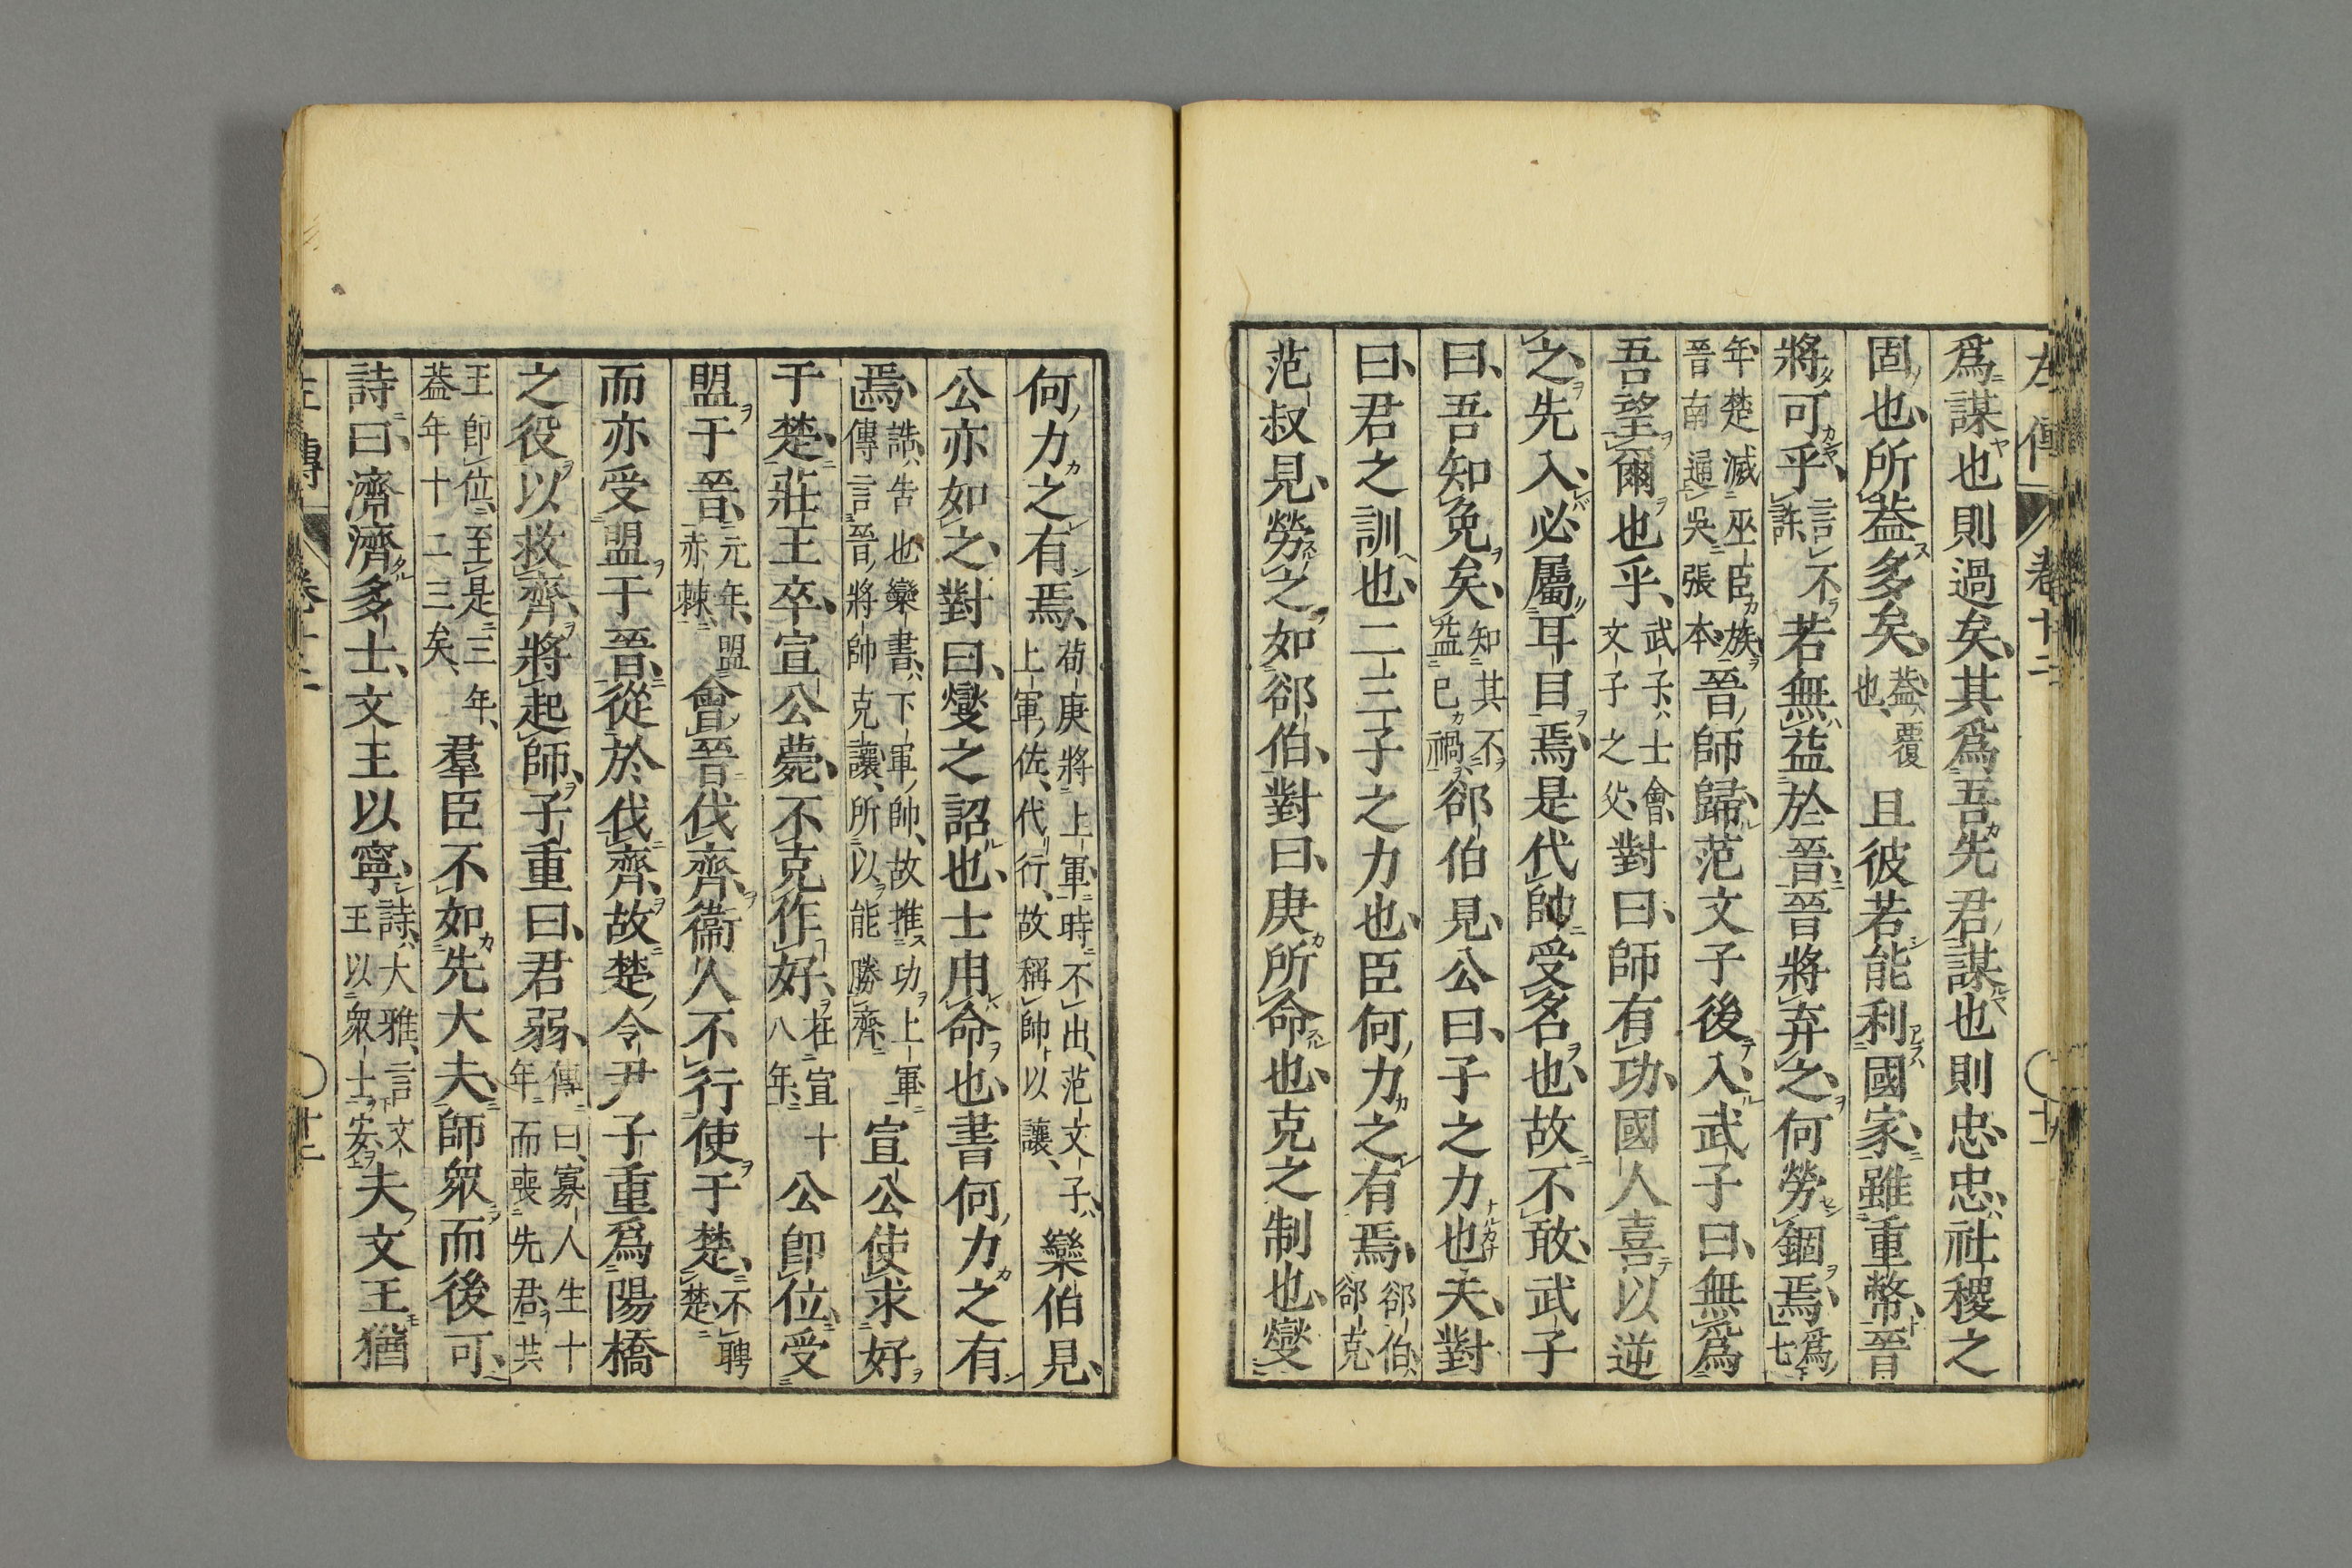 左傳 卷十二
爲謀也則過矣其爲吾先君謀也則忠忠社稷之
固也所葢多矣葢覆也且彼若能利國家雖重幣晉
將可乎言不許若無益於晉晉將弃之何勞錮焉爲七
年楚滅巫臣族晉南通吳張本晉師歸范文子後入武子曰無爲
吾望爾也乎武子士會文子之父對曰師有功國人喜以逆
之先入必屬耳目焉是代帥受名也故不敢武子
曰吾知免矣知其不益己禍郤伯見公曰子之力也夫對
曰君之訓也二三子之力也臣何力之有焉郤伯郤克
范叔見勞之如郤伯對曰庚所命也克之制也燮
何力之有焉荀庚將上軍時不出范文子上軍佐代行故稱帥以讓欒伯見
公亦如之對曰燮之詔也士用命也書何力之有
焉誥告也欒書下軍帥故推功上軍傳言晉將帥克讓所以能勝齊宣公使求好
于楚莊王卒宣公薨不克作好在宣十八年公卽位受
盟于晉元年盟赤棘會晉伐齊衞人不行使于楚不聘楚
而亦受盟于晉從於伐齊故楚令尹子重爲陽橋
之役以救齊將起師子重曰君弱傳曰寡人生十年而喪先君共
王卽位至是三年葢年十二三矣羣臣不如先大夫師衆而後可
詩曰濟濟多士文王以寧詩大雅言文王以衆士安夫文王猶